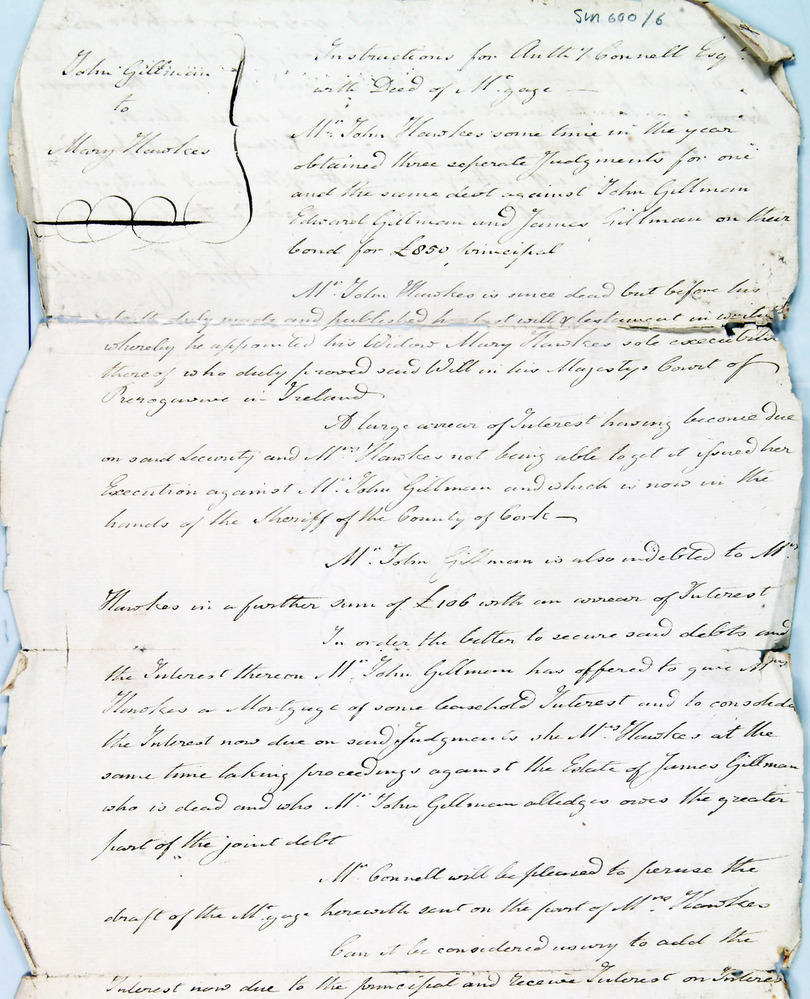 SM 600/6
John Gillman
to
Mary Hawkes
Instructions for Anth.y Connell Esq.r
with Deed of M.gage —
M.r John Hawkes some time in the year
obtained three seperate Judgments for one
and the same debt against John Gillman
Edward Gillman and James Gillman on their
bond for £850 principal
M.r John Hawkes is since dead but before his
death duly made and published his last will & testament in
whereby he appointed his Widow Mary Hawkes sole executrix
thereof who duty proved said Will in his Majestys Court of
Prerogative in Ireland
A large arrear of Interest having become due
on said Security and M.rs Hawkes not being able to get it issued her
Execution against M.r John Gillman and which is now in the
hands of the Sheriff of the County of Cork —
M.r John Gillman is also indebted to M.rs
Hawkes in a further sum of £106 with an arrear of Interest
In order the better to secure said debts and
the Interest thereon M.r John Gillman has offered to give M.rs
Hawkes a Mortgage of some leasehold Interest and to consolidate
the Interest now due on said Judgments she M.rs Hawkes at the
same time taking proceedings against the Estate of James Gillman
who is dead and who M.r John Gillman alledges owes the greater
part of the joint debt
M.r Connell will be pleased to peruse the
draft of the M.gage herewith sent on the part of M.rs Hawkes
Can it be considered usury to add the
Interest now due to the principal and receive Interest on Interest